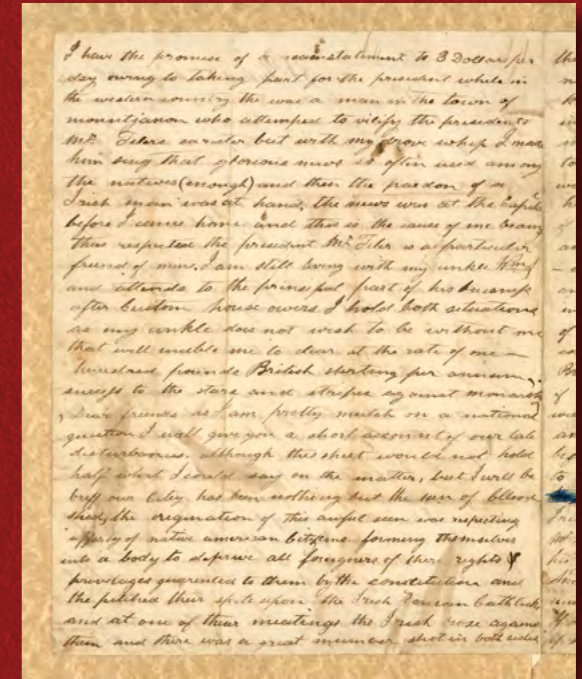 I have the promise of a reinstatement to 3 Dollar per
day owing to taking part for the president while in
the western country the was a man in the town of
mountjanon who attempted to vilify the presidents
Mr. Tilers caracter but with my drove whip I made
him sing that glorious news so often used among
the natives (enough) and then the pardon of a
Irish man was at hand, the news was at the Capital
before I came home and this is the cause of me being
thus respected the president Mr Tiler is a particular
friend of mine. I am still living with my unkle Wm
and attends to the prinsipal part of his business
after Custom house owers I hold both situations
as my unkle does not wish to be without me
that will enible me to clear at the rate of one
hundred pounds British sterling per annum,
sucsess to the stars and stripes against monarsh
Dear friends as I am pretty mutch on a national
question I will give you a short account of our late
disturbances. although this sheet would not hold
half what I could say on the matter, but I will be
breff our Citey has been nothing but the seen of blood
shed, the origination of this awful seen was respecting
of native american Citizens forming themselves
into a body to deprive all foreigners of there rights &
privelages guarenteed to them by the constitution and
the pitched their spite upon the Irish Roman Catholick
and at one of their meatings the Irish rose against
them and there was a great number shot in both sides